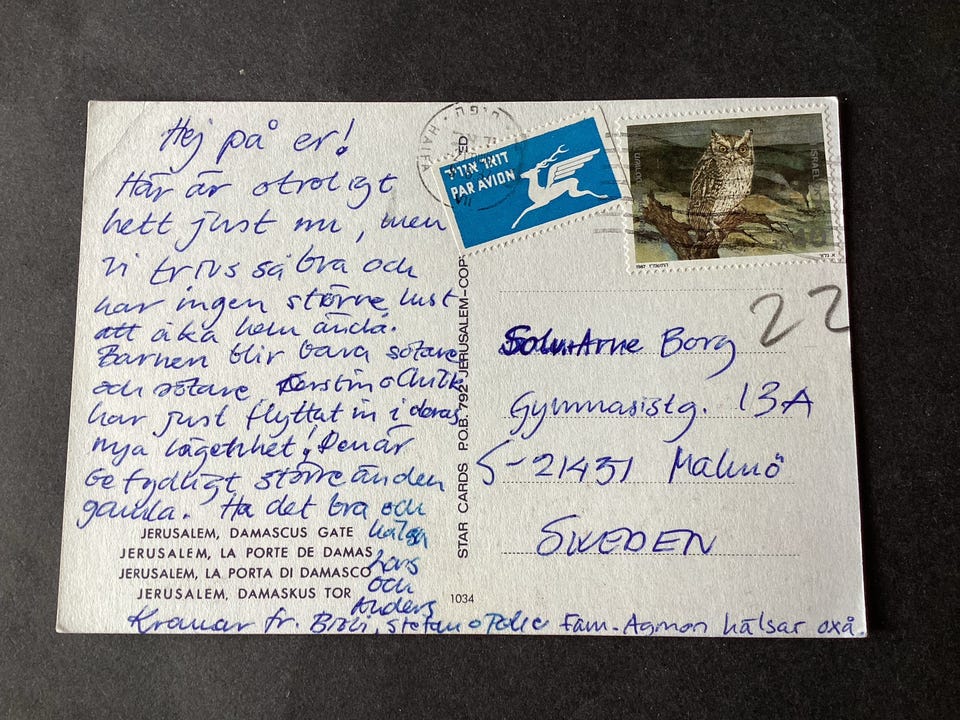 Hej på er!
Här är otroligt
hett just nu, men
vi trivs så bra och
har ingen större lust
att åka hem ändå.
Barnen blir bara sötare
och sötare. Kerstin o
har just flyttat in i deras
nya lägenhet! Den är
betydligt större än den
gamla. Ha det bra och
hälsa
Lars
och
Anders
Kramar fr. Bibi, Stefan o Fam. Agmon hälsar oxå.
JERUSALEM, DAMASCUS GATE
JERUSALEM, LA PORTE DE DAMAS
JERUSALEM, LA PORTA DI DAMASCO
JERUSALEM, DAMASKUS TOR
1034
STAR CARDS P.O.B. 792 JERUSALEM-COPY
חיפה HAIFA
דואר אויר
PAR AVION
ISRAEL
1987
22
Arne Borg
Gymnasistg. 13A
S-21431 Malmö
SWEDEN